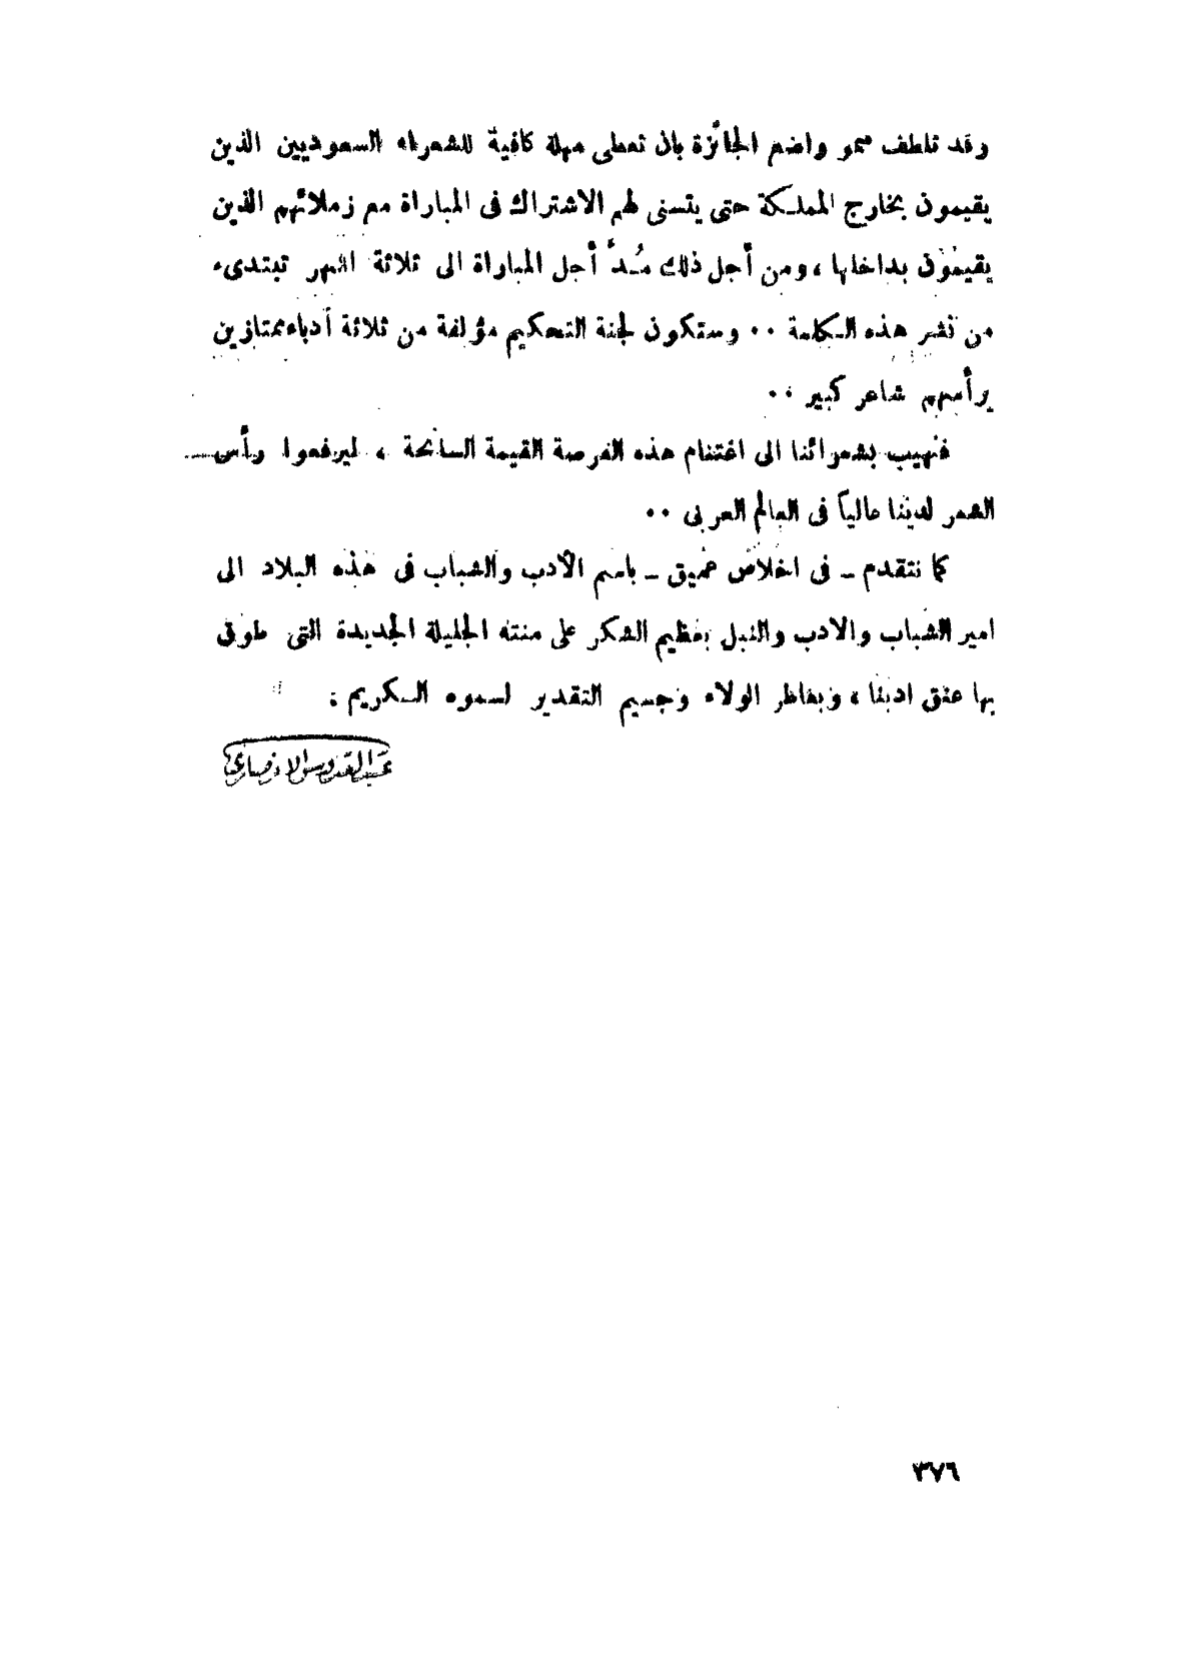 وقد تلطف سمو واضع الجائزة بان تعطى مهلة كافية للشعراء السعوديين الذين
يقيمون بخارج المملكة حتى يتسنى لهم الاشتراك فى المباراة مع زملائهم الذين
يقيمون بداخلها ، ومن أجل ذلك مُدَّ أجل المباراة الى ثلاثة اشهر تبتدىء
من نشر هذه الكلمة ٠٠ وستكون لجنة التحكيم مؤلفة من ثلاثة أدباء ممتازين
يرأسهم شاعر كبير ٠٠
فنهيب بشعرائنا الى اغتنام هذه الفرصة القيمة السانحة ، ليرفعوا رأس
الشعر لدينا عالياً فى العالم العربى ٠٠
كما نتقدم ـ فى اخلاص عميق ـ باسم الأدب والشباب فى هذه البلاد الى
امير الشباب والادب والنبل بعظيم الشكر على منته الجليلة الجديدة التى طوق
بها عنق ادبنا ، وبعاطر الولاء وجسيم التقدير لسموه الكريم ؛
عبد القدوس الانصاري
٣٧٦